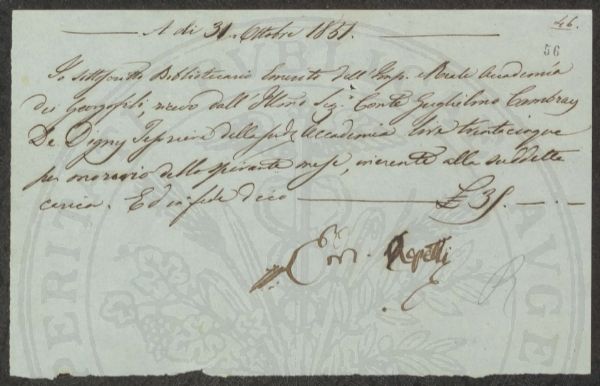 46.
56
A di 31. Ottobre 1851.
Io sottoscritto Bibliotecario Emerito dell'Imp. e Reale Accademia
dei Georgofili, ricevo dall'Illmo Sig. Conte Guglielmo Cambray
De Digny Tesoriere della sudd. Accademia lire trentacinque
per onorario dello spirante mese, inerente alla suddetta
carica. Ed in fede dico £ 35. —
Repetti
R